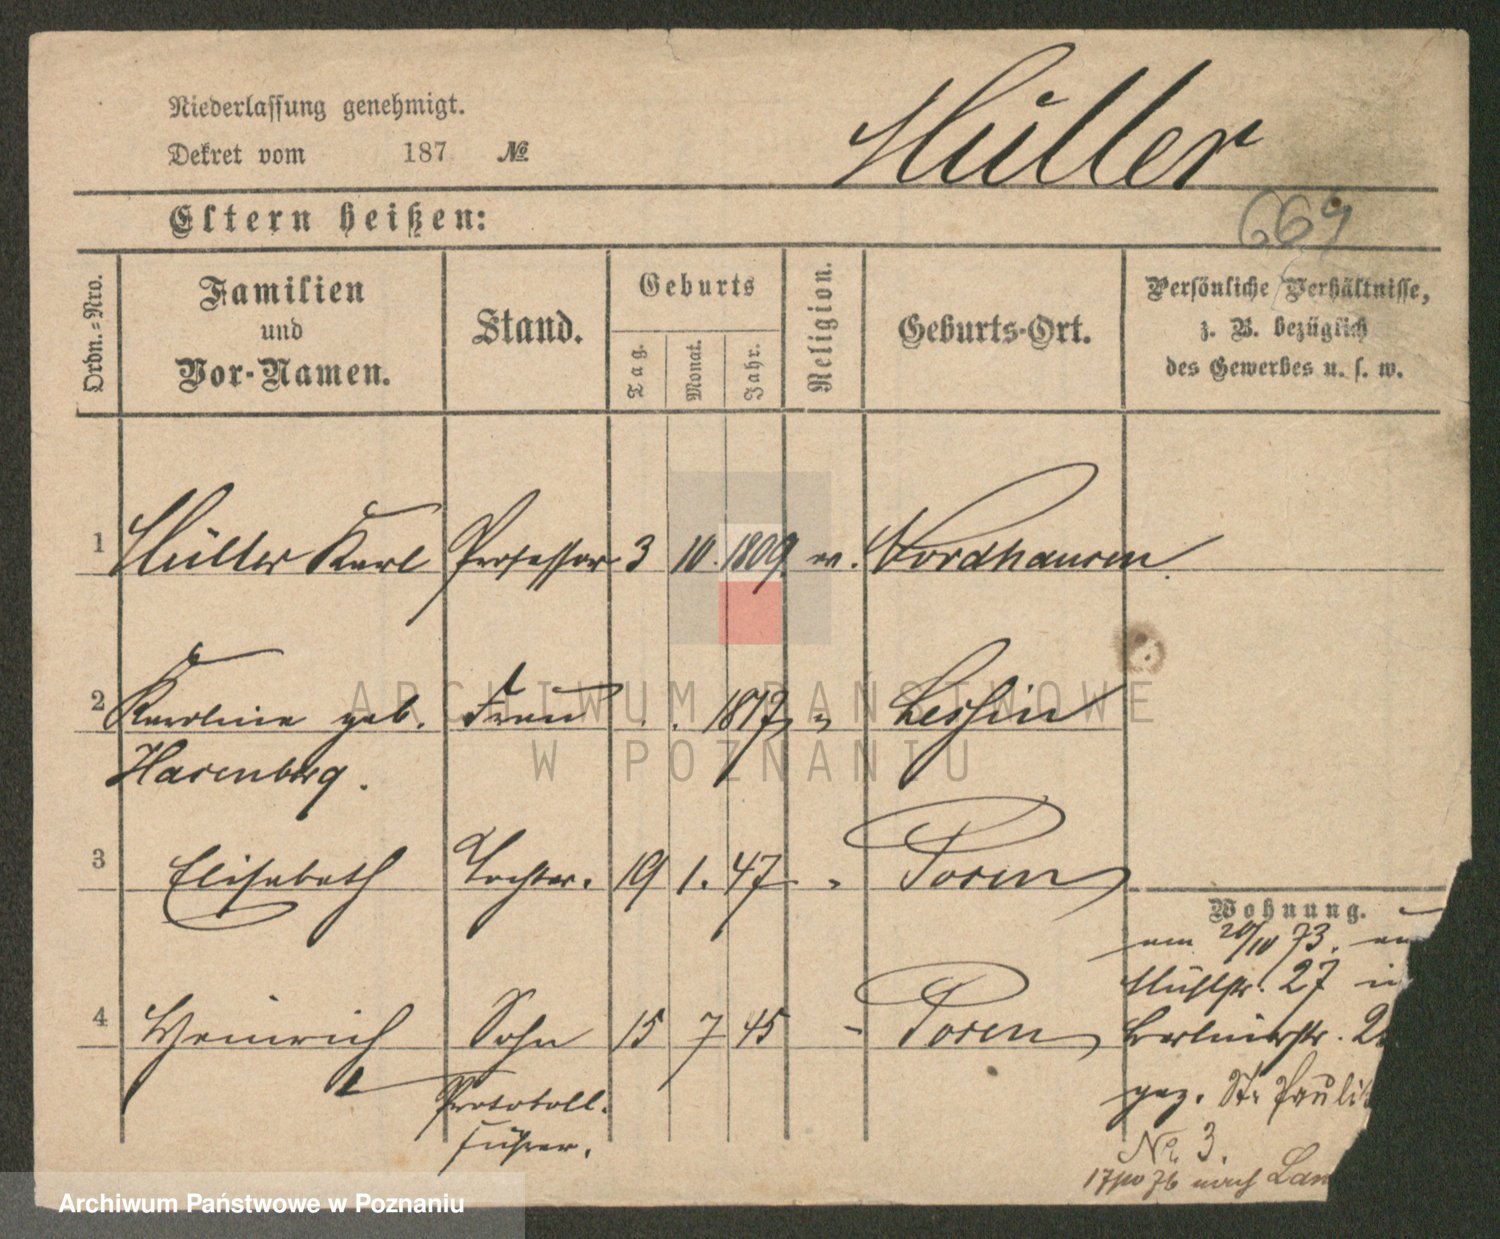 Niederlassung genehmigt.
Dekret vom 187 №
Müller
Eltern heißen:
669
Ordn.=Nro.
Familien
und
Vor-Namen.
Stand.
Geburts
Tag.
Monat.
Jahr.
Religion.
Geburts-Ort.
Persönliche Verhältnisse,
z. B. bezüglich
des Gewerbes u. s. w.
1 Müller Karl Professor 3 10. 1809. ev. Nordhausen
2 Karoline geb. Frau . . 1817 " Lessin
Hasenberg.
3 Elisabeth Tochter. 19 1. 47 " Posen
4 Heinrich Sohn 15 7 45 - Posen
Protokoll.
führer.
Wohnung.
am 20/10 73.
Mühlstr. 27
Berlinerstr.
gez. St.
No. 3.
17/10 76 nach
ARCHIWUM PAŃSTWOWE
W POZNANIU
Archiwum Państwowe w Poznaniu